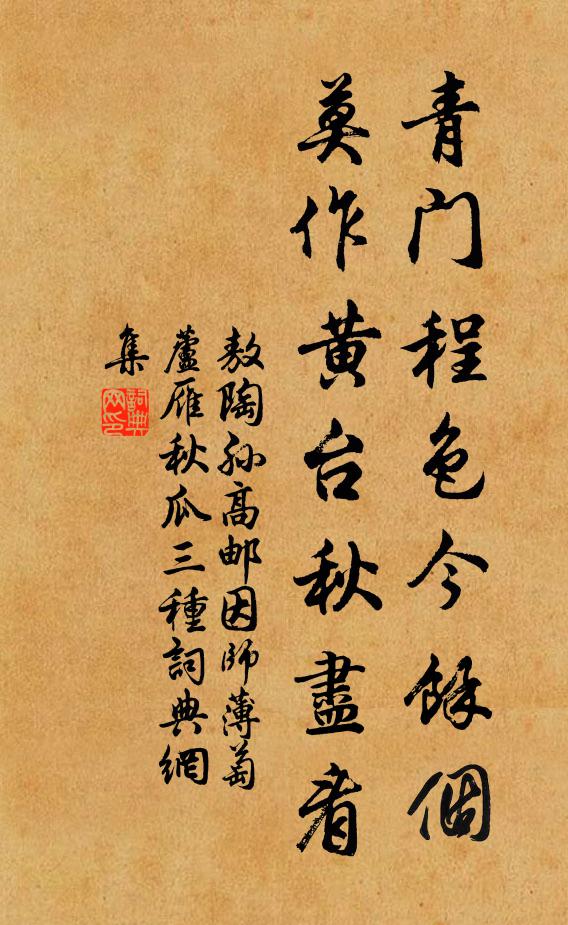 青门程色今餘個
莫作黄台秋盡看
敖陶孙高邮因师薄萄
蘆雁秋瓜三種詞典網
集
詞典
网印